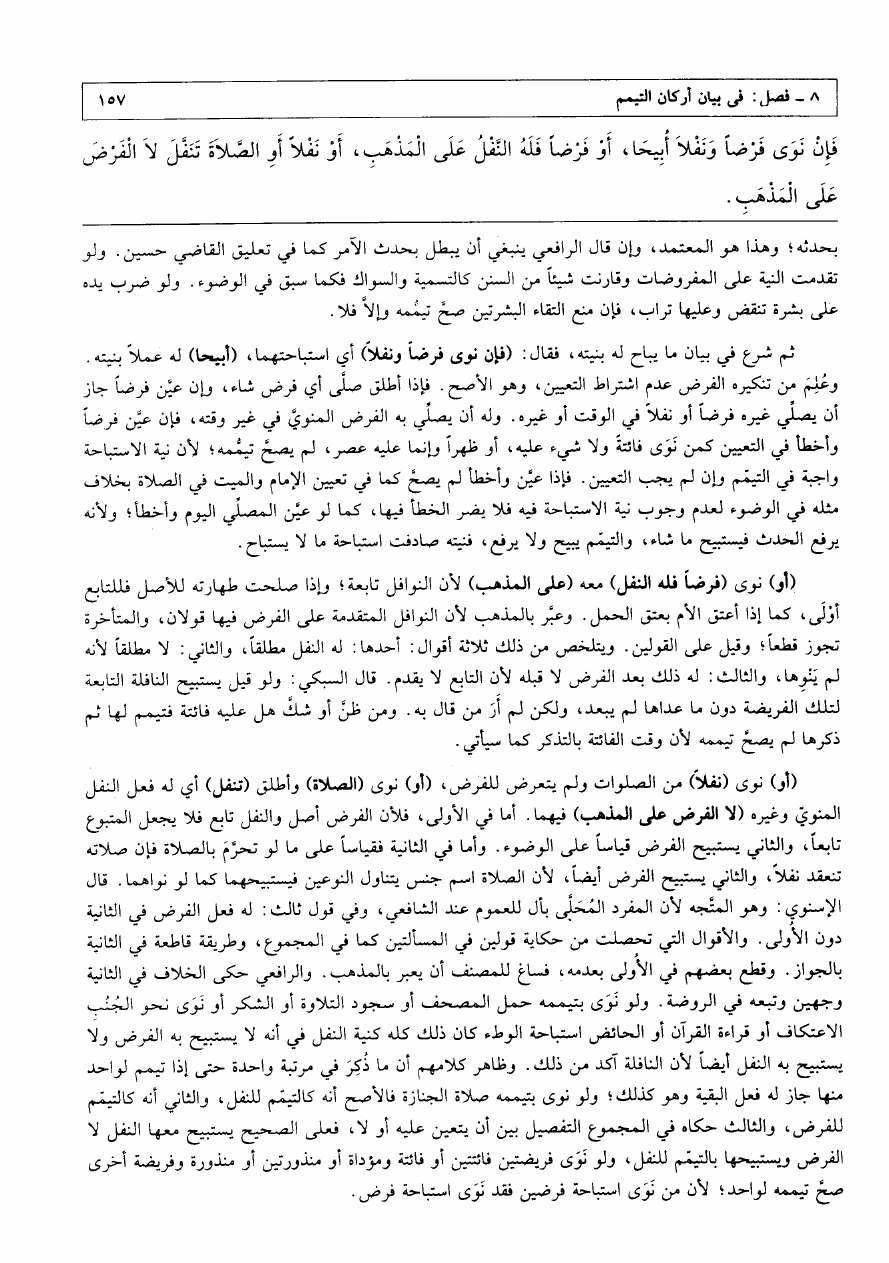 ٨ ـ فصل: فى بيان أركان التيمم ١٥٧
فَإِنْ نَوَى فَرْضاً وَنَفْلاً أُبِيحَا، أَوْ فَرْضاً فَلَهُ النَّفْلُ عَلَى الْمَذْهَبِ، أَوْ نَفْلاً أَوِ الصَّلاَةَ تَنَفَّلَ لاَ الْفَرْضَ
عَلَى الْمَذْهَبِ.
بحدثه؛ وهذا هو المعتمد، وإن قال الرافعي ينبغي أن يبطل بحدث الآمر كما في تعليق القاضي حسين. ولو
تقدمت النية على المفروضات وقارنت شيئاً من السنن كالتسمية والسواك فكما سبق في الوضوء. ولو ضرب يده
على بشرة تنقض وعليها تراب، فإن منع التقاء البشرتين صحَّ تيمُّمه وإلاَّ فلا.
ثم شرع في بيان ما يباح له بنيته، فقال: (فإن نوى فرضاً ونفلاً) أي استباحتهما، (أبيحا) له عملاً بنيته.
وعُلِمَ من تنكيره الفرض عدم اشتراط التعيين، وهو الأصح. فإذا أطلق صلَّى أي فرض شاء، وإن عيَّن فرضاً جاز
أن يصلِّي غيره فرضاً أو نفلاً في الوقت أو غيره. وله أن يصلِّي به الفرض المنويَّ في غير وقته، فإن عيَّن فرضاً
وأخطأ في التعيين كمن نَوَى فائتةً ولا شيء عليه، أو ظهراً وإنما عليه عصر، لم يصحَّ تيمُّمه؛ لأن نية الاستباحة
واجبة في التيمّم وإن لم يجب التعيين. فإذا عيَّن وأخطأ لم يصحَّ كما في تعيين الإمام والميت في الصلاة بخلاف
مثله في الوضوء لعدم وجوب نية الاستباحة فيه فلا يضر الخطأ فيها، كما لو عيَّن المصلِّي اليوم وأخطأ؛ ولأنه
يرفع الحدث فيستبيح ما شاء، والتيمّم يبيح ولا يرفع، فنيته صادفت استباحة ما لا يستباح.
(أو) نوى (فرضاً فله النفل) معه (على المذهب) لأن النوافل تابعة؛ وإذا صلحت طهارته للأصل فللتابع
أوْلَى، كما إذا أعتق الأم يعتق الحمل. وعبَّر بالمذهب لأن النوافل المتقدمة على الفرض فيها قولان، والمتأخرة
تجوز قطعاً؛ وقيل على القولين. ويتلخص من ذلك ثلاثة أقوال: أحدها: له النفل مطلقاً، والثاني: لا مطلقاً لأنه
لم يَنْوِها، والثالث: له ذلك بعد الفرض لا قبله لأن التابع لا يقدم. قال السبكي: ولو قيل يستبيح النافلة التابعة
لتلك الفريضة دون ما عداها لم يبعد، ولكن لم أَرَ من قال به. ومن ظنَّ أو شكَّ هل عليه فائتة فتيمم لها ثم
ذكرها لم يصحَّ تيممه لأن وقت الفائتة بالتذكر كما سيأتي.
(أو) نوى (نفلاً) من الصلوات ولم يتعرض للفرض، (أو) نوى (الصلاة) وأطلق (تنفل) أي له فعل النفل
المنويّ وغيره (لا الفرض على المذهب) فيهما. أما في الأولى، فلأن الفرض أصل والنفل تابع فلا يجعل المتبوع
تابعاً، والثاني يستبيح الفرض قياساً على الوضوء. وأما في الثانية فقياساً على ما لو تحرَّمَ بالصلاة فإن صلاته
تنعقد نفلاً، والثاني يستبيح الفرض أيضاً، لأن الصلاة اسم جنس يتناول النوعين فيستبيحهما كما لو نواهما. قال
الإسنوي: وهو المتَّجه لأن المفرد المُحَلَّى بأل للعموم عند الشافعي، وفي قول ثالث: له فعل الفرض في الثانية
دون الأولى. والأقوال التي تحصلت من حكاية قولين في المسألتين كما في المجموع، وطريقة قاطعة في الثانية
بالجواز. وقطع بعضهم في الأولى بعدمه، فساغ للمصنف أن يعبر بالمذهب. والرافعي حكى الخلاف في الثانية
وجهين وتبعه في الروضة. ولو نَوَى بتيممه حمل المصحف أو سجود التلاوة أو الشكر أو نَوَى نحو الجُنُب
الاعتكاف أو قراءة القرآن أو الحائض استباحة الوطء كان ذلك كله كنية النفل في أنه لا يستبيح به الفرض ولا
يستبيح به النفل أيضاً لأن النافلة آكد من ذلك. وظاهر كلامهم أن ما ذُكِرَ في مرتبة واحدة حتى إذا تيمم لواحد
منها جاز له فعل البقية وهو كذلك؛ ولو نوى بتيممه صلاة الجنازة فالأصح أنه كالتيمّم للنفل، والثاني أنه كالتيمّم
للفرض، والثالث حكاه في المجموع التفصيل بين أن يتعين عليه أو لا، فعلى الصحيح يستبيح معها النفل لا
الفرض ويستبيحها بالتيمّم للنفل، ولو نَوَى فريضتين فائتتين أو فائتة ومؤداة أو منذورتين أو منذورة وفريضة أخرى
صحَّ تيممه لواحد؛ لأن من نَوَى استباحة فرضين فقد نَوَى استباحة فرض.